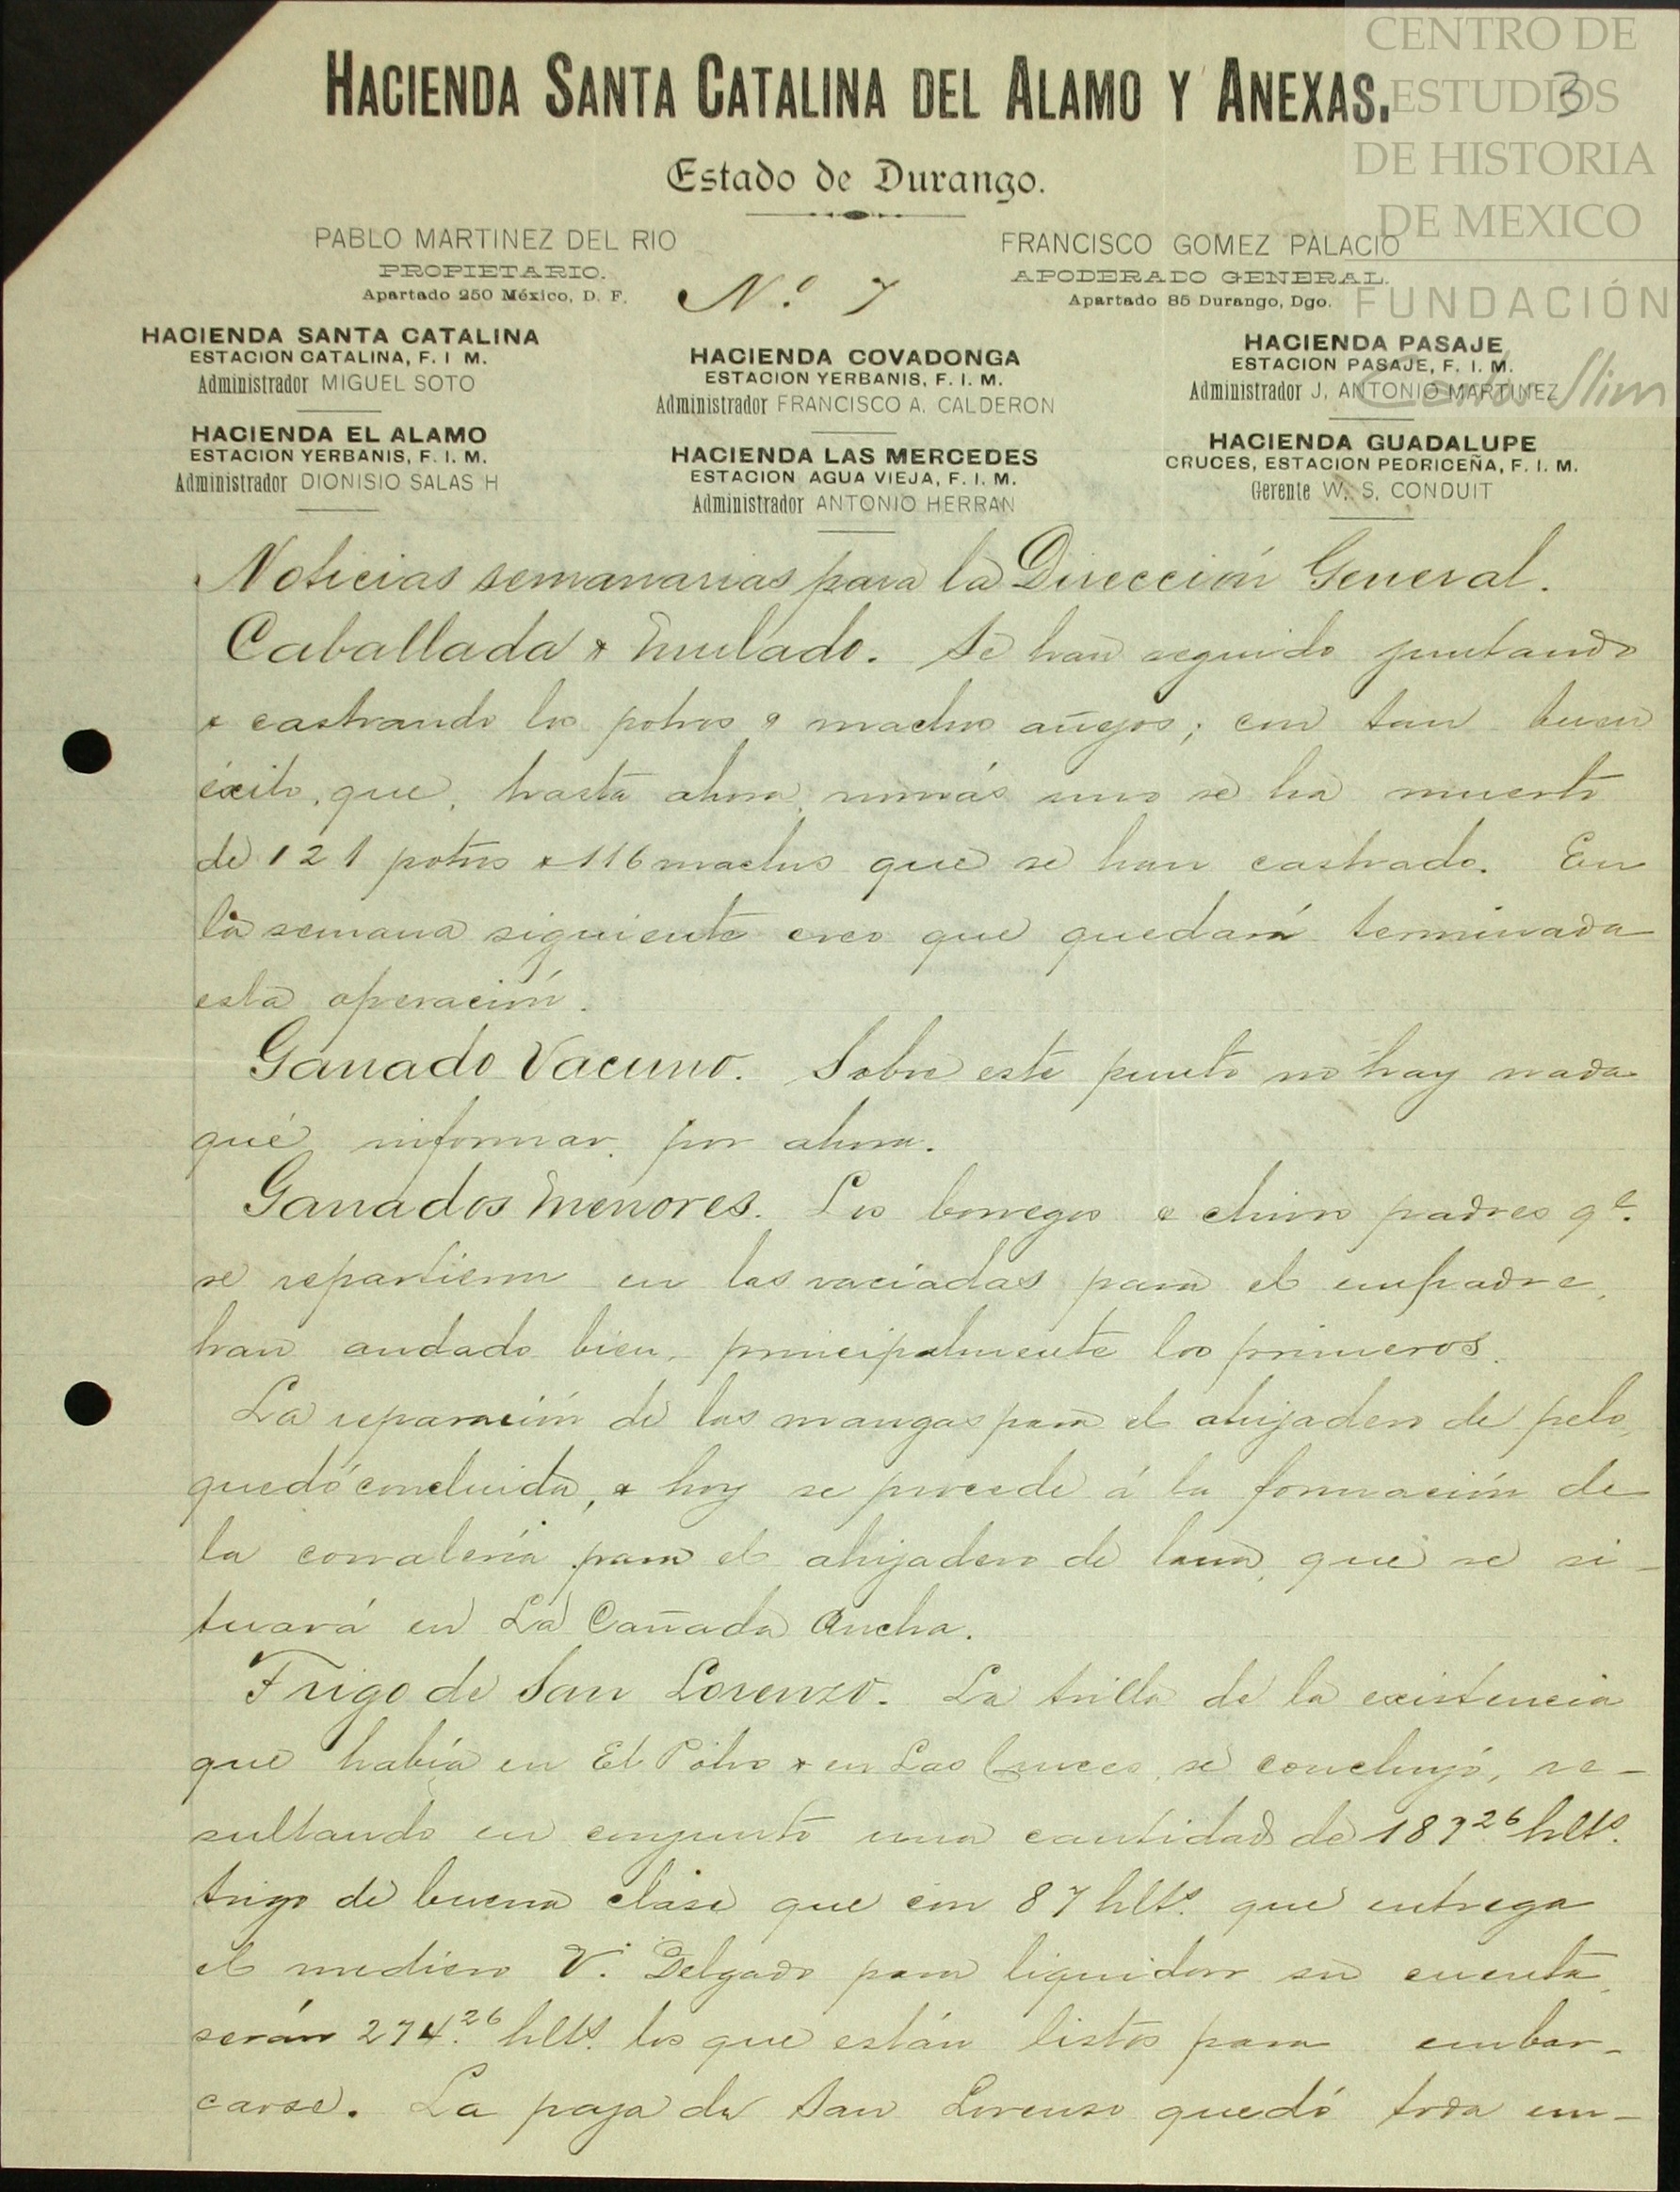 CENTRO DE
ESTUDIOS
DE HISTORIA
DE MEXICO
FUNDACIÓN
Carlos Slim
3
HACIENDA SANTA CATALINA DEL ALAMO Y ANEXAS.
Estado de Durango.
PABLO MARTINEZ DEL RIO
PROPIETARIO.
Apartado 250 México, D. F.
Nº 7
FRANCISCO GOMEZ PALACIO
APODERADO GENERAL.
Apartado 85 Durango, Dgo.
HACIENDA SANTA CATALINA
ESTACION CATALINA, F. I M.
Administrador MIGUEL SOTO
HACIENDA EL ALAMO
ESTACION YERBANIS, F. I. M.
Administrador DIONISIO SALAS H
HACIENDA COVADONGA
ESTACION YERBANIS, F. I. M.
Administrador FRANCISCO A. CALDERON
HACIENDA LAS MERCEDES
ESTACION AGUA VIEJA, F. I. M.
Administrador ANTONIO HERRAN
HACIENDA PASAJE
ESTACION PASAJE, F. I. M.
Administrador J. ANTONIO MARTINEZ
HACIENDA GUADALUPE
CRUCES, ESTACION PEDRICEÑA, F. I. M.
Gerente W. S. CONDUIT
Noticias semanarias para la Dirección General.
Caballada y mulada. Se han seguido juntando
y castrando los potros y machos añejos; con tan buen
éxito, que, hasta ahora, nomás uno se ha muerto
de 121 potros y 116 machos que se han castrado. En
la semana siguiente creo que quedará terminada
esta operación.
Ganado Vacuno. Sobre este punto no hay nada
qué informar por ahora.
Ganados menores. Los borregos y chivos padres qe.
se repartieron en las vaciadas para el empadre,
han andado bien, principalmente los primeros.
La reparación de las mangas para el ahijadero de pelo,
quedó concluida, y hoy se procede á la formación de
la corralería para el ahijadero de lana, que se si-
tuará en La Cañada Ancha.
Trigo de San Lorenzo. La trilla de la existencia
que había en El Potro y en Las Cruces, se concluyó, re-
sultando en conjunto una cantidad de 187.26 hlts.
trigo de buena clase que con 87 hlts. que entrega
el mediero V. Delgado para liquidar su cuenta,
serán 274.26 hlts. los que están listos para embar-
carse. La paja de San Lorenzo quedó toda en-